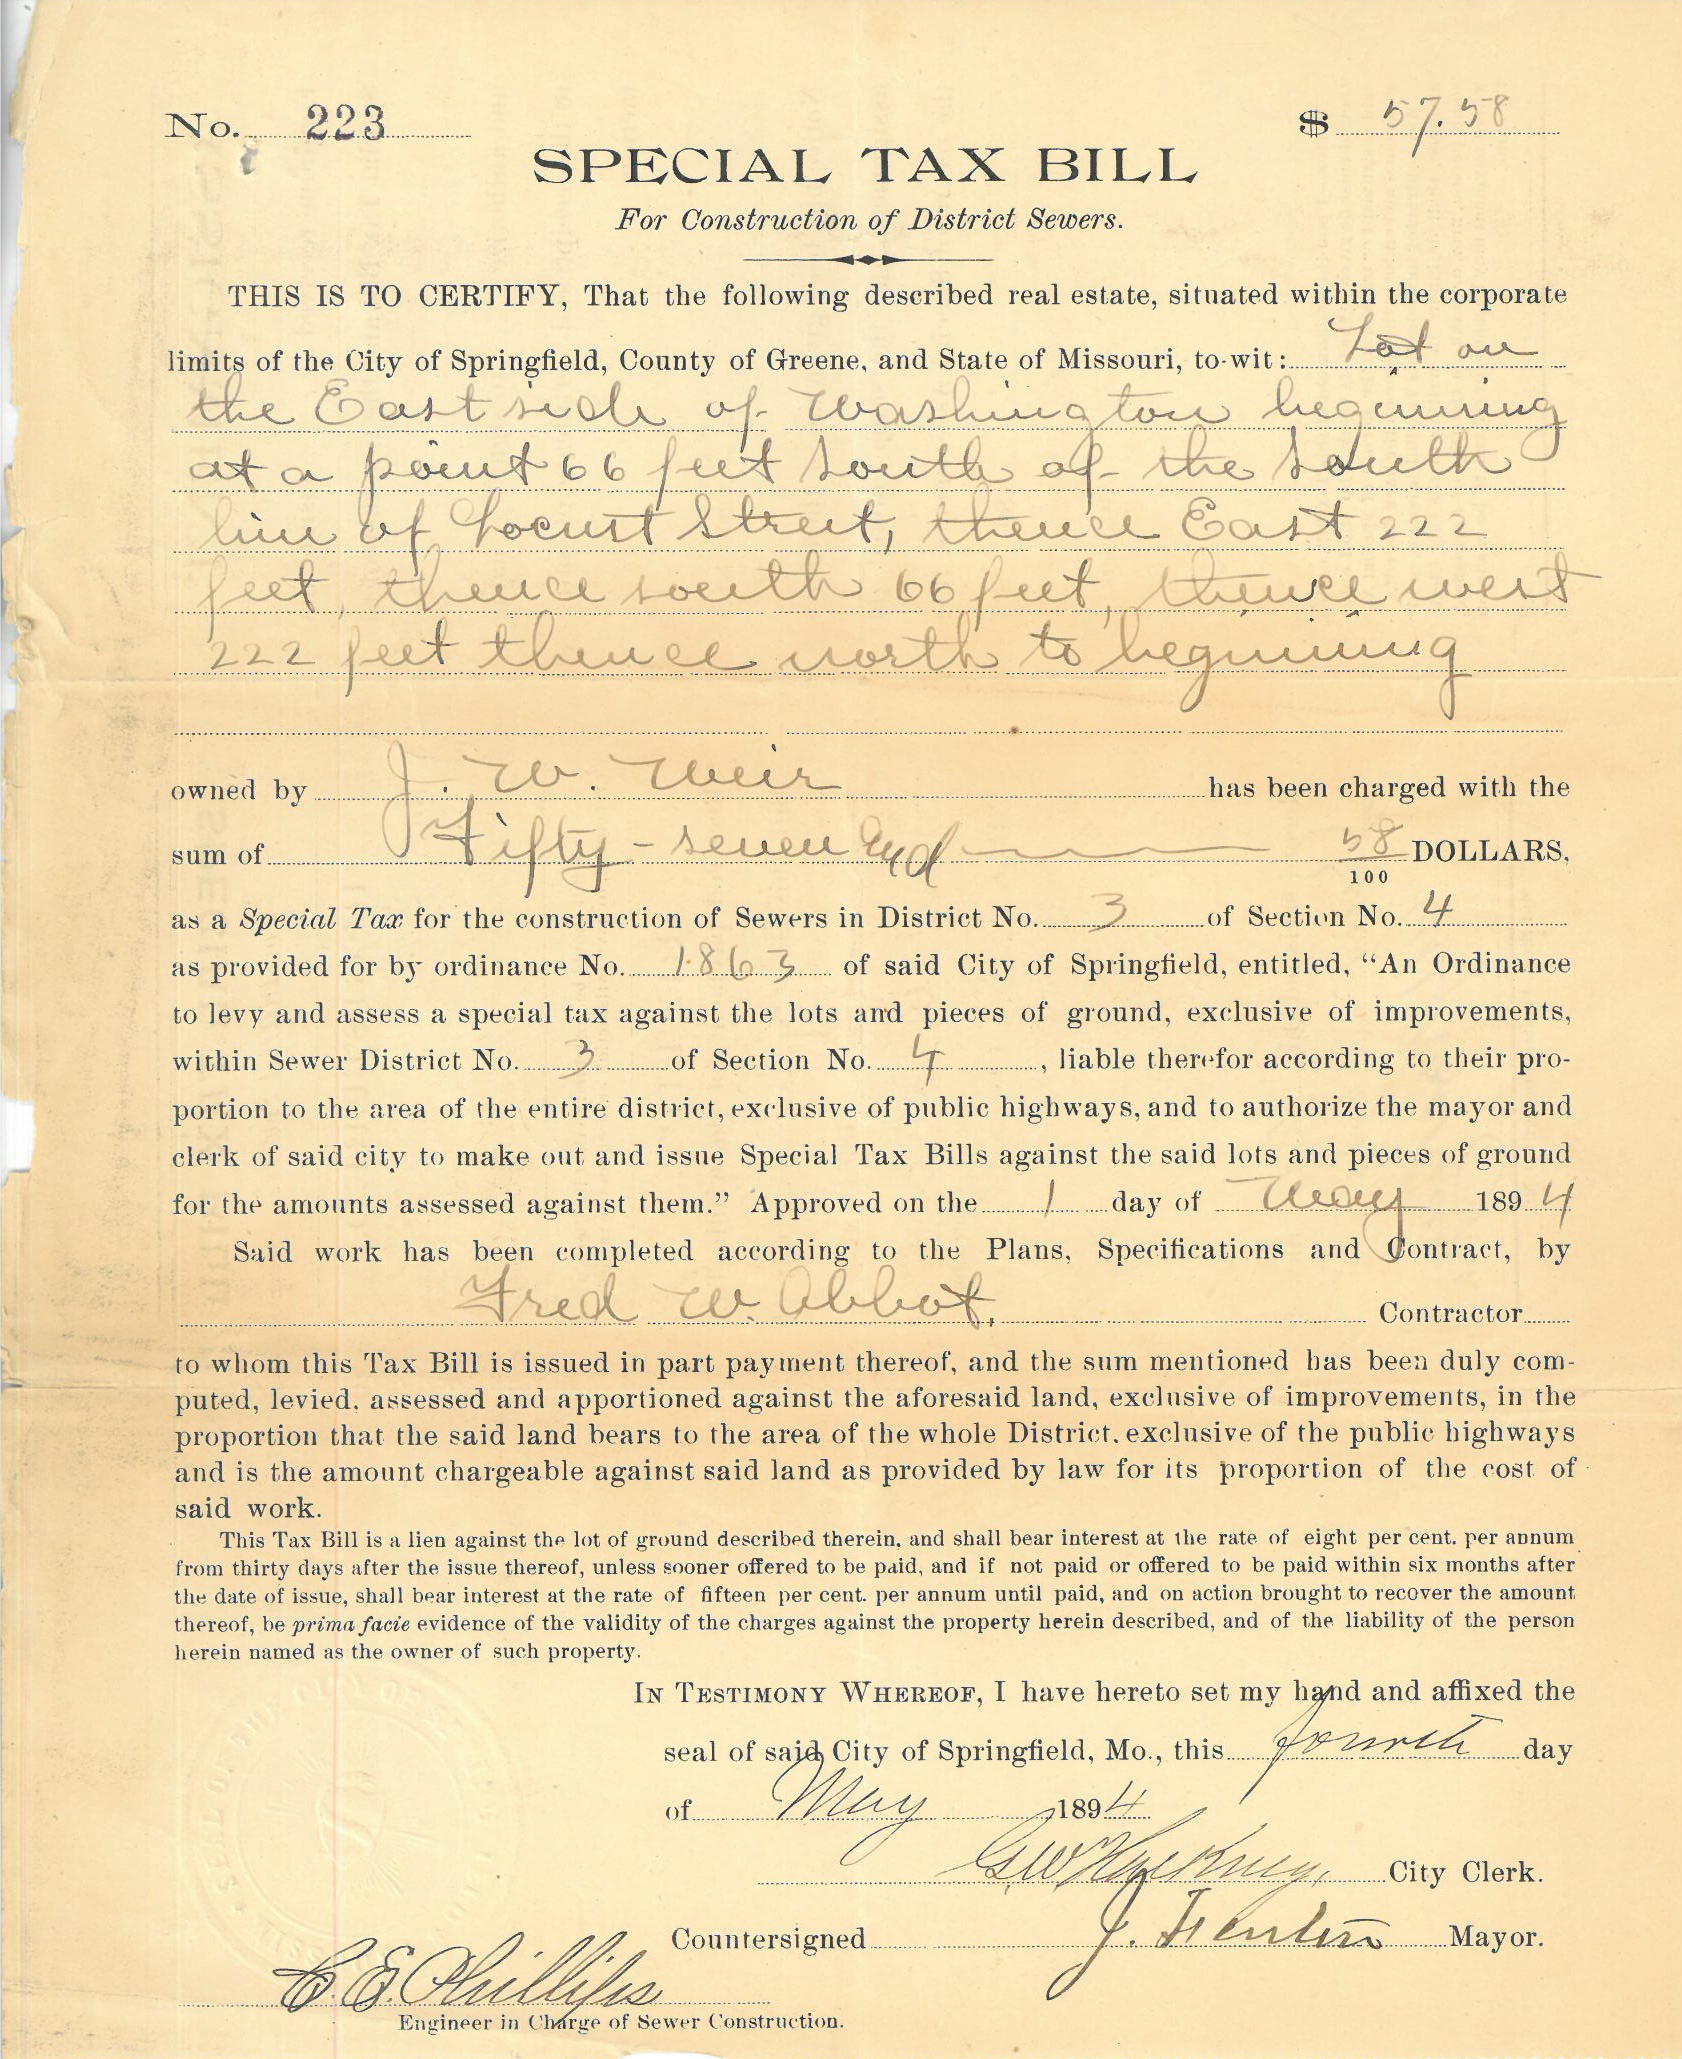 No. 223 $ 57.58
SPECIAL TAX BILL
For Construction of District Sewers.
THIS IS TO CERTIFY, That the following described real estate, situated within the corporate
limits of the City of Springfield, County of Greene, and State of Missouri, to-wit: Lot on
the East side of Washington beginning
at a point 66 feet south of the south
line of Locust Street, thence East 222
feet, thence south 66 feet, thence west
222 feet thence north to beginning
owned by J. W. Weir has been charged with the
sum of Fifty-seven and 58/100 DOLLARS,
as a Special Tax for the construction of Sewers in District No. 3 of Section No. 4
as provided for by ordinance No. 1863 of said City of Springfield, entitled, “An Ordinance
to levy and assess a special tax against the lots and pieces of ground, exclusive of improvements,
within Sewer District No. 3 of Section No. 4, liable therefor according to their pro-
portion to the area of the entire district, exclusive of public highways, and to authorize the mayor and
clerk of said city to make out and issue Special Tax Bills against the said lots and pieces of ground
for the amounts assessed against them.” Approved on the 1 day of May 1894
Said work has been completed according to the Plans, Specifications and Contract, by
Fred W. Abbot, Contractor
to whom this Tax Bill is issued in part payment thereof, and the sum mentioned has been duly com-
puted, levied, assessed and apportioned against the aforesaid land, exclusive of improvements, in the
proportion that the said land bears to the area of the whole District, exclusive of the public highways
and is the amount chargeable against said land as provided by law for its proportion of the cost of
said work.
This Tax Bill is a lien against the lot of ground described therein, and shall bear interest at the rate of eight per cent. per annum
from thirty days after the issue thereof, unless sooner offered to be paid, and if not paid or offered to be paid within six months after
the date of issue, shall bear interest at the rate of fifteen per cent. per annum until paid, and on action brought to recover the amount
thereof, be prima facie evidence of the validity of the charges against the property herein described, and of the liability of the person
herein named as the owner of such property.
IN TESTIMONY WHEREOF, I have hereto set my hand and affixed the
seal of said City of Springfield, Mo., this fourth day
of May 1894
G.W. Hackney, City Clerk.
Countersigned J. Fenton Mayor.
C. E. Phillips
Engineer in Charge of Sewer Construction.